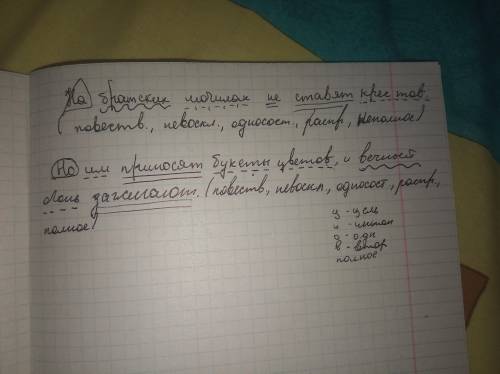 На братских могилах не ставят крестов.
(повеств., невоскл., односост., распр, неполное)
Но им приносят букеты цветов, и вечный
огонь зажигают. (повеств, невоскл, односост, распр,
полное)
полное